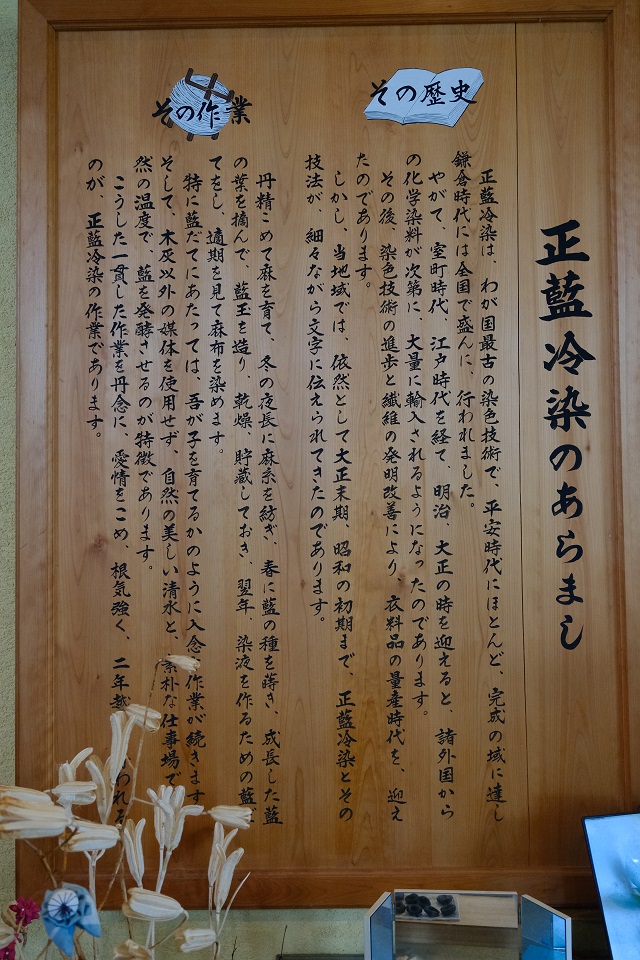 正藍冷染のあらまし
その歴史
正藍冷染は、わが国最古の染色技術で、平安時代にほとんど、完成の域に達し
鎌倉時代には全国で盛んに、行われました。
やがて、室町時代、江戸時代を経て、明治、大正の時を迎えると、諸外国から
の化学染料が次第に、大量に輸入されるようになったのであります。
その後、染色技術の進歩と繊維の発明改善により、衣料品の量産時代を、迎え
たのであります。
しかし、当地域では、依然として大正末期、昭和の初期まで、正藍冷染とその
技法が、細々ながら文字に伝えられてきたのであります。
その作業
丹精こめて麻を育て、冬の夜長に麻糸を紡ぎ、春に藍の種を蒔き、成長した藍
の葉を摘んで、藍玉を造り、乾燥、貯蔵しておき、翌年、染液を作るための藍だ
てをし、適期を見て麻布を染めます。
特に藍だてにあたっては、吾が子を育てるかのように入念な作業が続きます
そして、木灰以外の媒体を使用せず、自然の美しい清水と、素朴な仕事場で
然の温度で、藍を発酵させるのが特徴であります。
こうした一貫した作業を丹念に、愛情をこめ、根気強く、二年越 われる
のが、正藍冷染の作業であります。